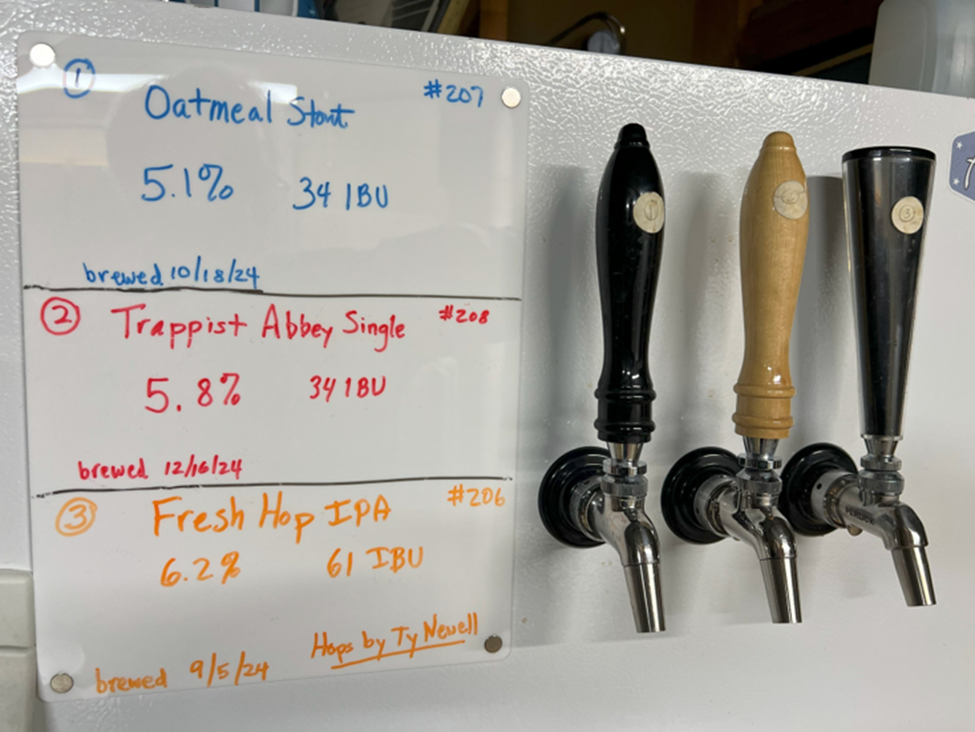 ① Oatmeal Stout #207
5.1% 34 IBU
brewed 10/18/24
② Trappist Abbey Single #208
5.8% 34 IBU
brewed 12/16/24
③ Fresh Hop IPA #206
6.2% 61 IBU
Hops by Ty Newell
brewed 9/5/24
1
3